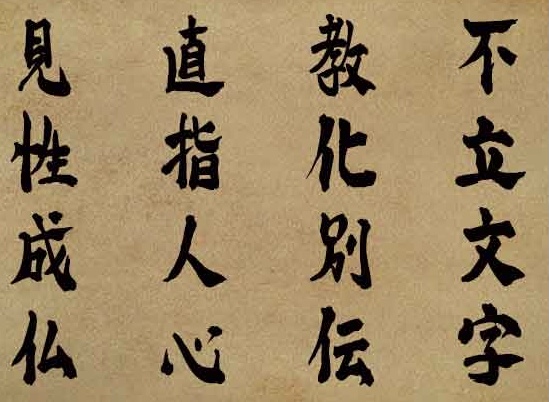 不立文字
教化別伝
直指人心
見性成仏